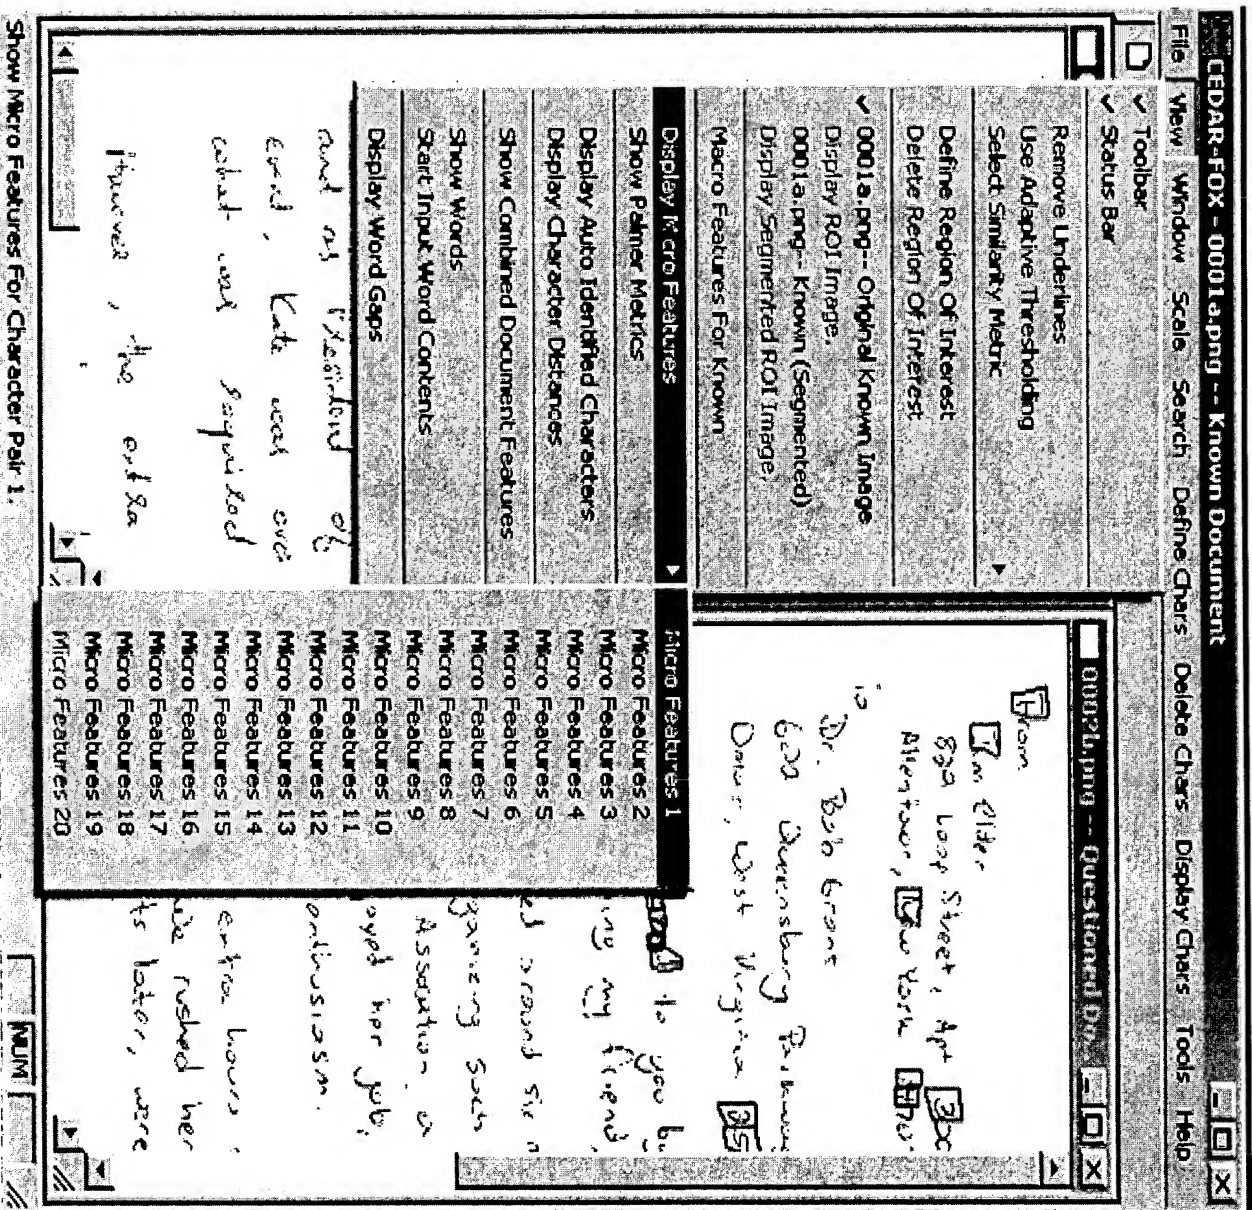 CEDAR-FOX - 0001a.png -- Known Document
File View Window Scale Search Define Chars Delete Chars Display Chars Tools Help
✓ Toolbar
✓ Status Bar
Remove Underlines
Use Adaptive Thresholding
Select Similarity Metric
Define Region Of Interest
Delete Region Of Interest
✓ 0001a.png-- Original Known Image
Display ROI Image.
0001a.png-- Known (Segmented)
Display Segmented ROI Image.
Macro Features For Known
Display Micro Features
Show Palmer Metrics
Display Auto Identified Characters
Display Character Distances
Show Combined Document Features
Show Words
Start Input Word Contents
Display Word Gaps
Micro Features 1
Micro Features 2
Micro Features 3
Micro Features 4
Micro Features 5
Micro Features 6
Micro Features 7
Micro Features 8
Micro Features 9
Micro Features 10
Micro Features 11
Micro Features 12
Micro Features 13
Micro Features 14
Micro Features 15
Micro Features 16
Micro Features 17
Micro Features 18
Micro Features 19
Micro Features 20
and as President of
Kate was over
what was required
However, the extra
0002b.png -- Questioned D
From
Jim Elder
829 Loop Street, Apt 300
Allentown, New York
To
Dr. Bob Grant
602 Queensbury Parkway
Omar, West Virginia 25
to you b
ing my friend,
ed around six
ganizing such
Association. a
oyed her job,
enthusiasm.
extra hours
we rushed her
ts later, were
Show Micro Features For Character Pair 1.
NUM